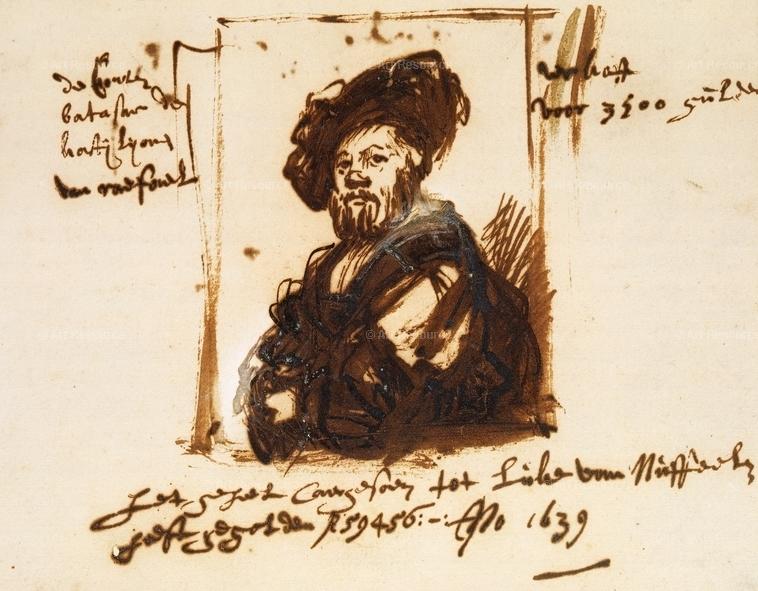 de Conte
batasar de
kastijlijone
van raefael
verkoft
voor 3500 gulden
het geheel Caergesoen tot Luke van Nuffeelen
heeft gegolden f 59456:-: Ao 1639
© Art Resource